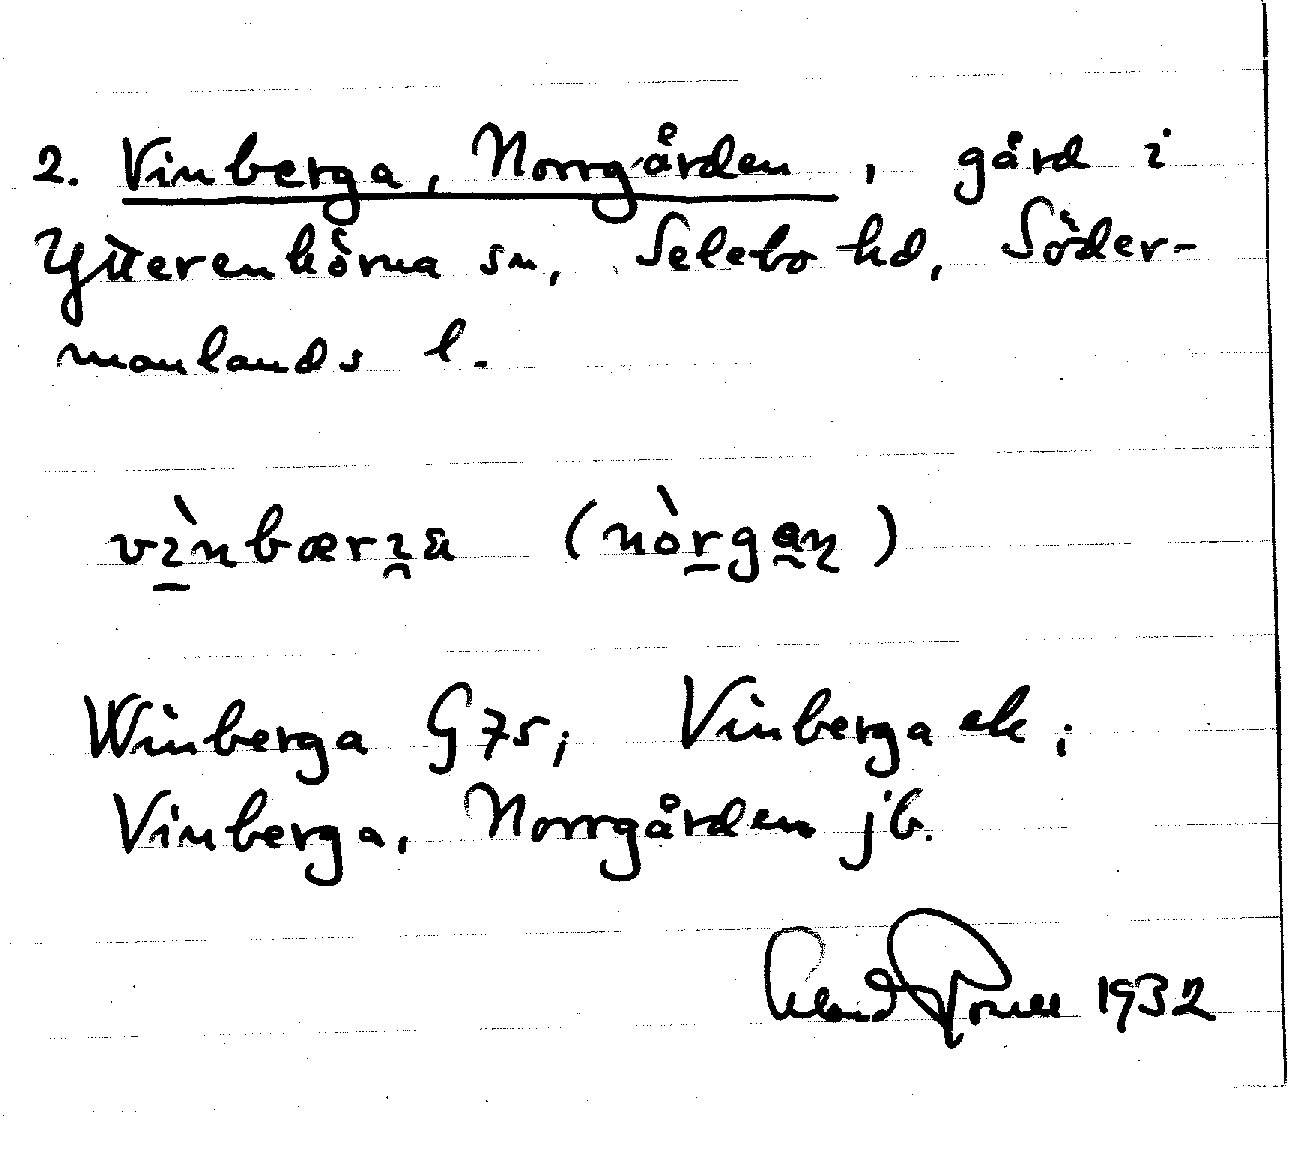 2. Vinberga, Norrgården, gård i
Ytterenhörna sn, Selebo hd, Söder-
manlands l.
vìnbærɿa (nòrgaɳ)
Winberga G75; Vinberga ek;
Vinberga, Norrgården jb.
1932